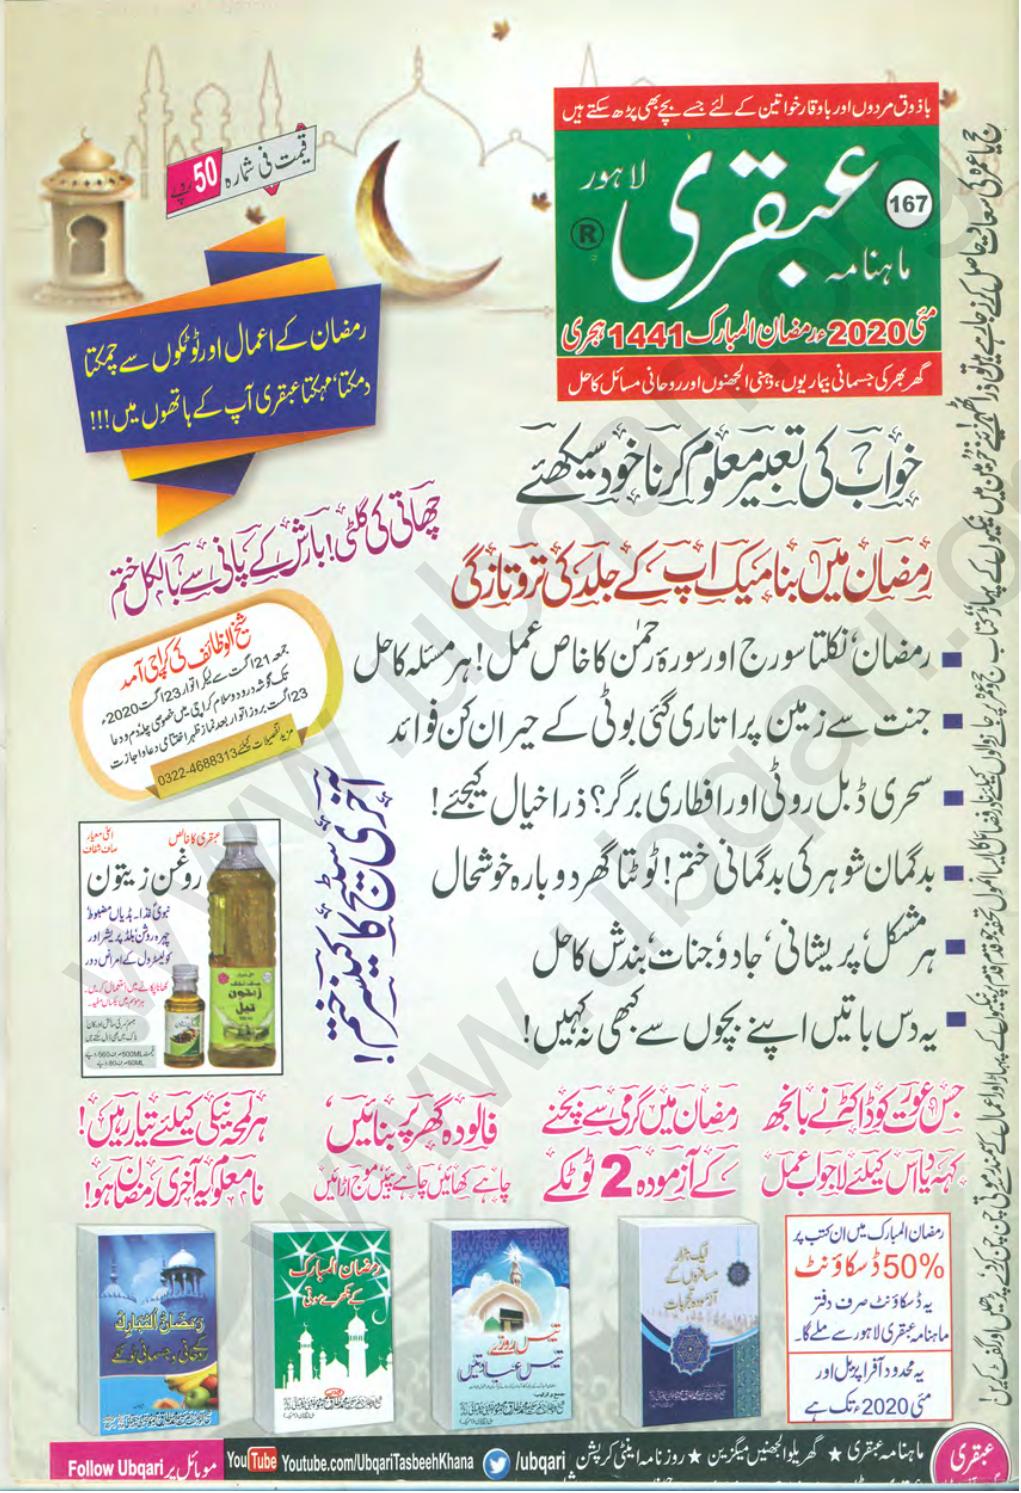 باذوق مردوں اور باوقار خواتین کے لئے جسے بچے بھی پڑھ سکتے ہیں
ماہنامہ عبقری لاہور
167
®
مئی 2020ء رمضان المبارک 1441 ہجری
گھر بھر کی جسمانی بیماریوں، ذہنی الجھنوں اور روحانی مسائل کا حل
قیمت فی شمارہ 50 روپے
رمضان کے اعمال اور ٹوٹکوں سے چمکتا
دمکتا، مہکتا عبقری آپ کے ہاتھوں میں!!!
خواب کی تعبیر معلوم کرنا خود سیکھئے
چھاتی کی گلٹی! بارش کے پانی سے بالکل ختم
رمضان میں بنا میک اپ کے جلد کی تروتازگی
رمضان، نکلتا سورج اور سورۂ رحمٰن کا خاص عمل! ہر مسئلہ کا حل
جنت سے زمین پر اتاری گئی بوٹی کے حیران کن فوائد
سحری ڈبل روٹی اور افطاری برگر؟ ذرا خیال کیجئے!
بدگمان شوہر کی بدگمانی ختم! ٹوٹتا گھر دوبارہ خوشحال
ہر مشکل، پریشانی، جادو جنات، بندش کا حل
یہ دس باتیں اپنے بچوں سے کبھی نہ کہیں!
شیخ الوظائف کی کراچی آمد
جمعہ 21 اگست سے لیکر اتوار 23 اگست 2020ء
تک گوشہ درود و سلام کراچی میں خصوصی چلہ دم و دعا
23 اگست بروز اتوار بعد نماز ظہر اختتامی دعا و اجازت
مزید تفصیلات کیلئے 0322-4688313
آخری سٹیج کا کینسر ختم!
عبقری کا خالص
اعلیٰ معیار
صاف شفاف
روغن زیتون
نبوی غذا۔ ہڈیاں مضبوط
چہرہ روشن، بلڈ پریشر اور
کولیسٹرول کے امراض دور
کھانا پکانے میں استعمال کریں۔
زیتون
تیل
جس عورت کو ڈاکٹر نے بانجھ
کہہ دیا اس کیلئے لاجواب عمل
رمضان میں گرمی سے بچنے
کے آزمودہ 2 ٹوٹکے
فالودہ گھر پر بنائیں
چاہے کھائیں چاہے پئیں موج اڑائیں
ہر لمحہ نیکی کیلئے تیار رہیں!
نامعلوم یہ آخری رمضان ہو!
رمضان المبارک میں ان کتب پر
50% ڈسکاؤنٹ
یہ ڈسکاؤنٹ صرف دفتر
ماہنامہ عبقری لاہور سے ملے گا۔
یہ محدود آفر اپریل اور
مئی 2020ء تک ہے
ایک ہزار
مسافروں کے
آزمودہ تجربات
تیس روزے
تیس عبادتیں
رمضان المبارک
کے بکھرے موتی
رمضان المبارک
کے روحانی و جسمانی ٹوٹکے
عبقری
ماہنامہ عبقری ★ گھریلو الجھنیں میگزین ★ روزنامہ اینٹی کرپشن
/ubqari
YouTube Youtube.com/UbqariTasbeehKhana
موبائل پر Follow Ubqari
www.ubqari.org
www.ubqari.org